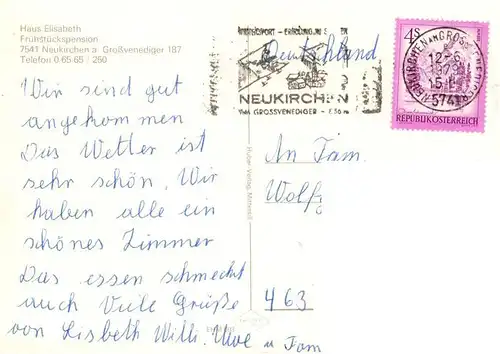 Haus Elisabeth
Frühstückspension
7541 Neukirchen a. Großvenediger 187
Telefon 0 65 65 / 260
Wir sind gut
angekommen
Das Wetter ist
sehr schön. Wir
haben alle ein
schönes Zimmer
Das essen schmeckt
auch Viele Grüße
von Lisbeth Willi. Uwe u Fam
Deutschland
NEUKIRCHEN
AM GROSSVENEDIGER
4 S
REPUBLIK ÖSTERREICH
NEUKIRCHEN AM GROSSVENEDIGER
5741
An Fam.
Wolf
463